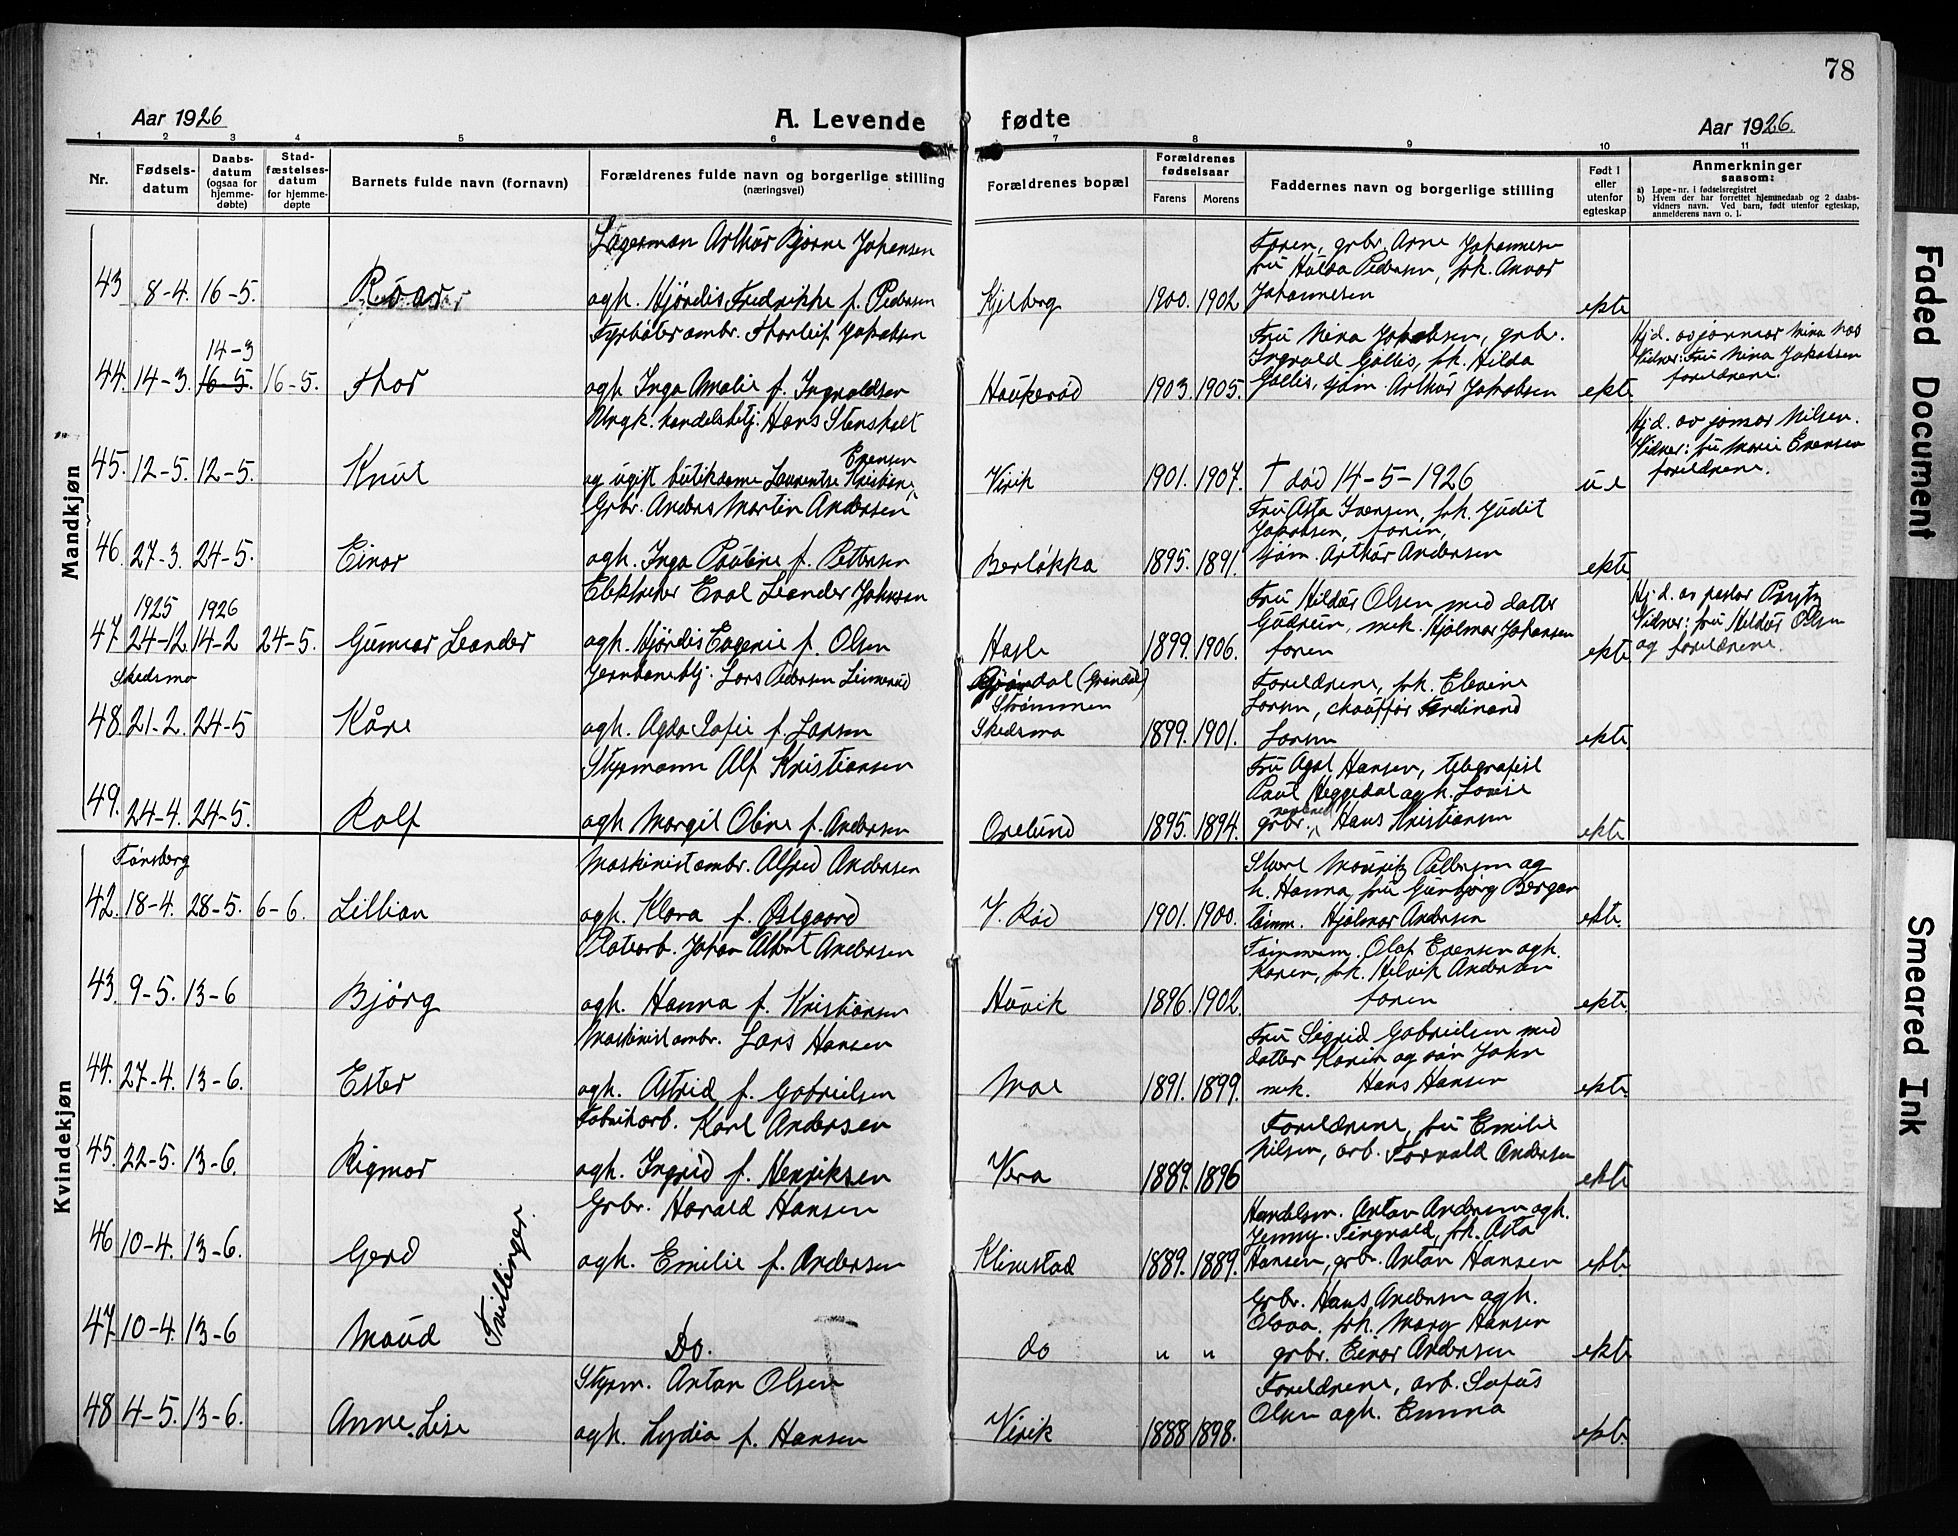 78
Aar 1926
A. Levende fødte
Aar 1926.
1 2 3 4 5 6 7 8 9 10 11
Nr.
Fødsels-
datum
Daabs-
datum
(ogsaa for
hjemme-
døbte)
Stad-
fæstelses-
datum
for hjemme-
døpte
Barnets fulde navn (fornavn)
Forældrenes fulde navn og borgerlige stilling
(næringsvei)
Forældrenes bopæl
Forældrenes
fødselsaar
Farens Morens
Faddernes navn og borgerlige stilling
Født i
eller
utenfor
egteskap
Anmerkninger
saasom:
a) Løpe-nr. i fødselsregistret
b) Hvem der har forrettet hjemmedaab og 2 daabs-
vidners navn. Ved barn, født utenfor egteskap,
anmelderens navn o. l.
Mandkjøn
Lagerman Arthur Bjarne Johansen
43 8-4. 16-5. Roar agh. Hjørdis Fredrikke f. Pedersen
Kjelberg 1900. 1902
Faren, grbr. Arne Johannesen
fru Hulda Pedersen, frk. Anvor
Johannesen
ekte
Fyrbøter ambr. Thorleif Jakobsen
14-3
44. 14-3. 16-5. 16-5. Thor agh. Inga Amalie f. Ingvaldsen
Haukerød 1903. 1905.
Fru Nina Jakobsen, grbr.
Ingvald Gallis, frk. Hilda
Gallis, sjøm. Arthur Jakobsen
ekte
Hj.d. av jormor Nina Næs
Vidner: Fru Nina Jakobsen
foreldrene.
Ungk. handelsbetj. Hans Stensholt
45. 12-5. 12-5. Knut og ugift butikdame Laurentse Kristiane Evensen
Virik 1901. 1907. † død 14-5-1926
u e
Hj.d. av jormor Nilsen.
Vidner: fru Marie Evensen
foreldrene.
Grbr. Anders Martin Andersen
46. 27-3. 24-5. Einar agh. Inga Pauline f. Pettersen
Berløkka 1895. 1891.
Fru Asta Iversen, frk. Judit
Jakobsen, faren,
sjøm. Arthur Andersen
ekte
Elektriker Eval Leander Johnsen
1925 1926
47. 24-12. 14-2 24-5. Gunnar Leander agh. Hjørdis Eugenie f. Olsen
Hasle 1899. 1906.
Fru Hildur Olsen med datter
Gudrun, mek. Hjalmar Johansen
faren
ekte
Hj.d. av pastor Prytz
Vidner: fru Hildur Olsen
og foreldrene.
Skedsmo
Jernbanebtj. Lars Pedersen Linnerud
48. 21-2. 24-5 Kåre agh. Agda Sofie f. Larsen
Grøndal (Grøndal)
Strømmen
Skedsmo 1899. 1901.
Foreldrene, frk. Elevine
Larsen, chauffør Ferdinand
Larsen
ekte
Styrmann Alf Kristiansen
49. 24-4. 24-5. Rolf agh. Margit Oline f. Andersen
Orelund 1895. 1894.
Fru Agot Hansen, telegrafist
Paul Heggedal agh. Lovise
grbr. Hans Kristiansen
ekte
Kvindekjøn
Tønsberg
Maskinist ambr. Alfred Andersen
42. 18-4. 28-5. 6-6. Lillian agh. Klara f. Østgaard
V. Rød 1901. 1900.
Stuert Mauritz Pettersen og
h. Hanna, fru Gunbjørg Bergan
tømm. Hjalmar Andersen
ekte.
Platearb. Johan Albert Andersen
43. 9-5. 13-6 Bjørg agh. Hanna f. Kristiansen
Håvik 1896. 1902.
Tømmerm. Olaf Evensen agh.
Karen, frk. Helvik Andersen
faren
ekte
Maskinist ambr. Lars Hansen
44. 27-4. 13-6. Ester agh. Astrid f. Gabrielsen
Moe 1891. 1899.
Fru Sigrid Gabrielsen med
datter Karin og søn John
mek. Hans Hansen
ekte.
Fabrikarb. Karl Andersen
45. 22-5. 13-6. Rigmor agh. Ingrid f. Henriksen
Vera 1889. 1896
Foreldrene, fru Emilie
Nilsen, arb. Torvald Andersen
ekte
Grbr. Harald Hansen
46 10-4. 13-6. Gerd Tvillinger. agh. Emilie f. Andersen
Klinestad 1889. 1889.
Handelsm. Anton Andersen agh.
Jenny. Tingvald, frk. Asta
Hansen, grbr. Anton Hansen
ekte.
47 10-4. 13-6 Maud Do.
do " "
Grbr. Hans Andersen agh.
Olava. frk. Mary Hansen
grbr. Einar Andersen
ekte
Styrm. Anton Olsen
48 4-5. 13-6. Anne Lise agh. Lydia f. Hansen
Virik 1888 1898.
Foreldrene, arb. Sofus
Olsen agh. Emma
ekte.
Faded Document
Smeared Ink